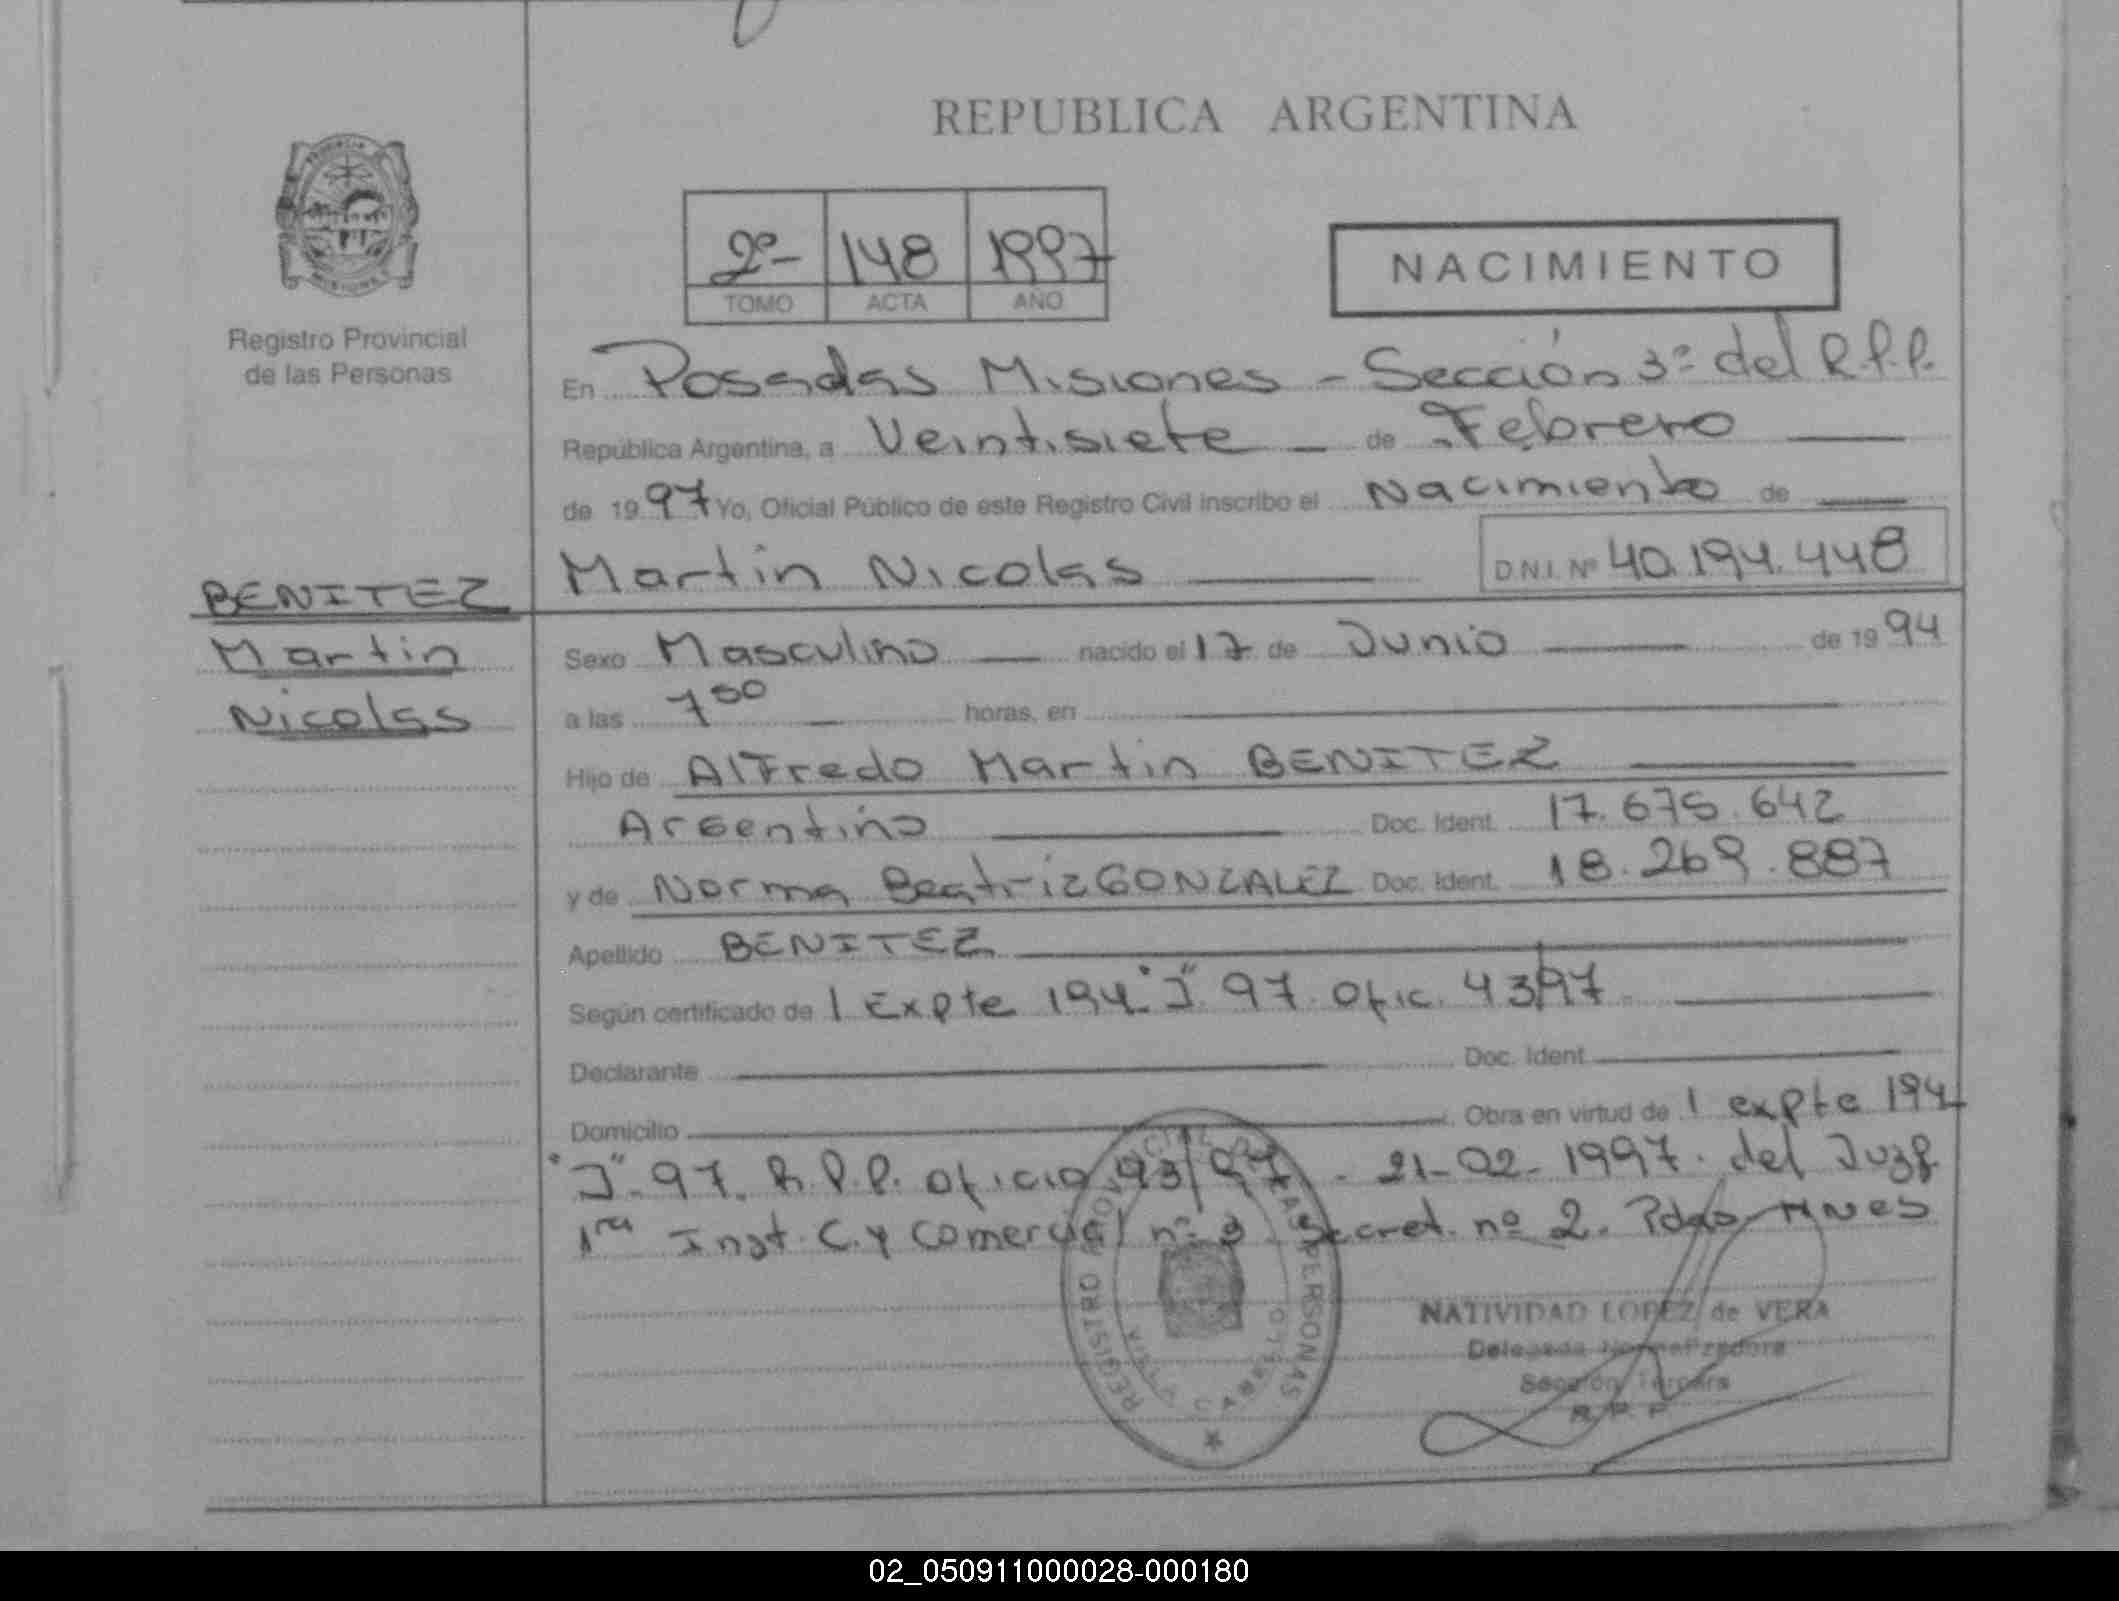 REPUBLICA ARGENTINA
2º 148 1997
TOMO ACTA AÑO
NACIMIENTO
Registro Provincial
de las Personas
En Posadas Misiones - Sección 3ª del R.P.P.
República Argentina, a Veintisiete - de Febrero
de 1997 Yo, Oficial Público de este Registro Civil inscribo el Nacimiento de
Martin Nicolas D.N.I. Nº 40.194.448
BENITEZ
Martin
Nicolas
Sexo Masculino nacido el 17 de Junio de 1994
a las 7 50 horas, en
Hijo de Alfredo Martin BENITEZ
Argentino Doc. Ident. 17.675.642
y de Norma Beatriz GONZALEZ Doc. Ident. 18.269.887
Apellido BENITEZ
Según certificado de 1 Expte 194 "J" 97 Ofic. 43/97
Declarante Doc. Ident.
Domicilio Obra en virtud de 1 expte 194
"J" 97. R.P.P. oficio 43/97 - 21-02-1997. del Juzg
1ra Inst. C. y Comercial nº 3 Secret. nº 2. Pdas Mnes
REGISTRO PROVINCIAL DE LAS PERSONAS
VILLA CABELLO
NATIVIDAD LOPEZ de VERA
Delegada Normalizadora
Sección Tercera
R. P. P.
02_050911000028-000180